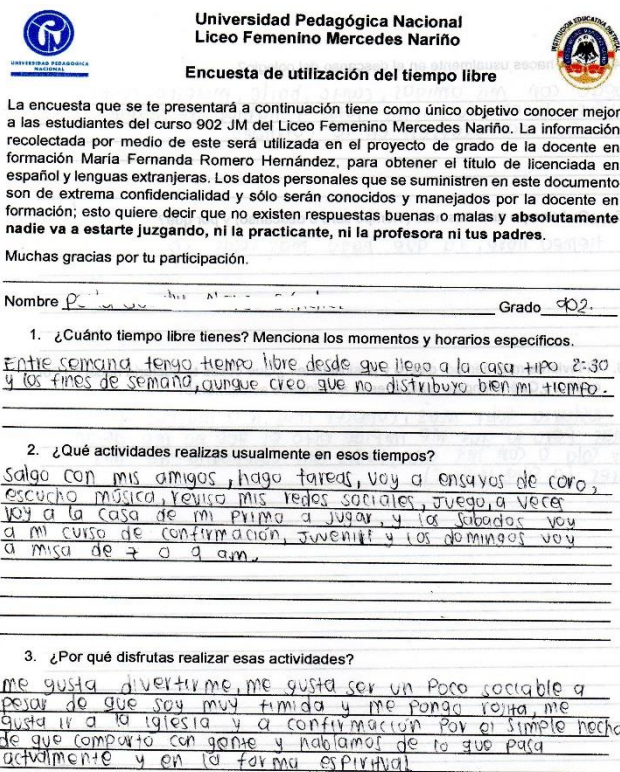 UNIVERSIDAD PEDAGOGICA
NACIONAL
Universidad Pedagógica Nacional
Liceo Femenino Mercedes Nariño
Encuesta de utilización del tiempo libre
La encuesta que se te presentará a continuación tiene como único objetivo conocer mejor
a las estudiantes del curso 902 JM del Liceo Femenino Mercedes Nariño. La información
recolectada por medio de este será utilizada en el proyecto de grado de la docente en
formación María Fernanda Romero Hernández, para obtener el título de licenciada en
español y lenguas extranjeras. Los datos personales que se suministren en este documento
son de extrema confidencialidad y sólo serán conocidos y manejados por la docente en
formación; esto quiere decir que no existen respuestas buenas o malas y absolutamente
nadie va a estarte juzgando, ni la practicante, ni la profesora ni tus padres.
Muchas gracias por tu participación.
Nombre Grado 902.
1. ¿Cuánto tiempo libre tienes? Menciona los momentos y horarios específicos.
Entre semana tengo tiempo libre desde que llego a la casa tipo 2:30
y los fines de semana, aunque creo que no distribuyo bien mi tiempo.
2. ¿Qué actividades realizas usualmente en esos tiempos?
Salgo con mis amigos, hago tareas, voy a ensayos de coro,
escucho música, reviso mis redes sociales, juego, a veces
voy a la casa de mi primo a jugar, y los sabados voy
a mi curso de confirmación, y los domingos voy
a misa de 7 o 9 am.
3. ¿Por qué disfrutas realizar esas actividades?
me gusta divertirme, me gusta ser un poco sociable a
pesar de que soy muy timida y me pongo rojita, me
gusta ir a la iglesia y a confirmación por el simple hecho
de que comparto con gente y hablamos de lo que pasa
actualmente y en la forma espiritual